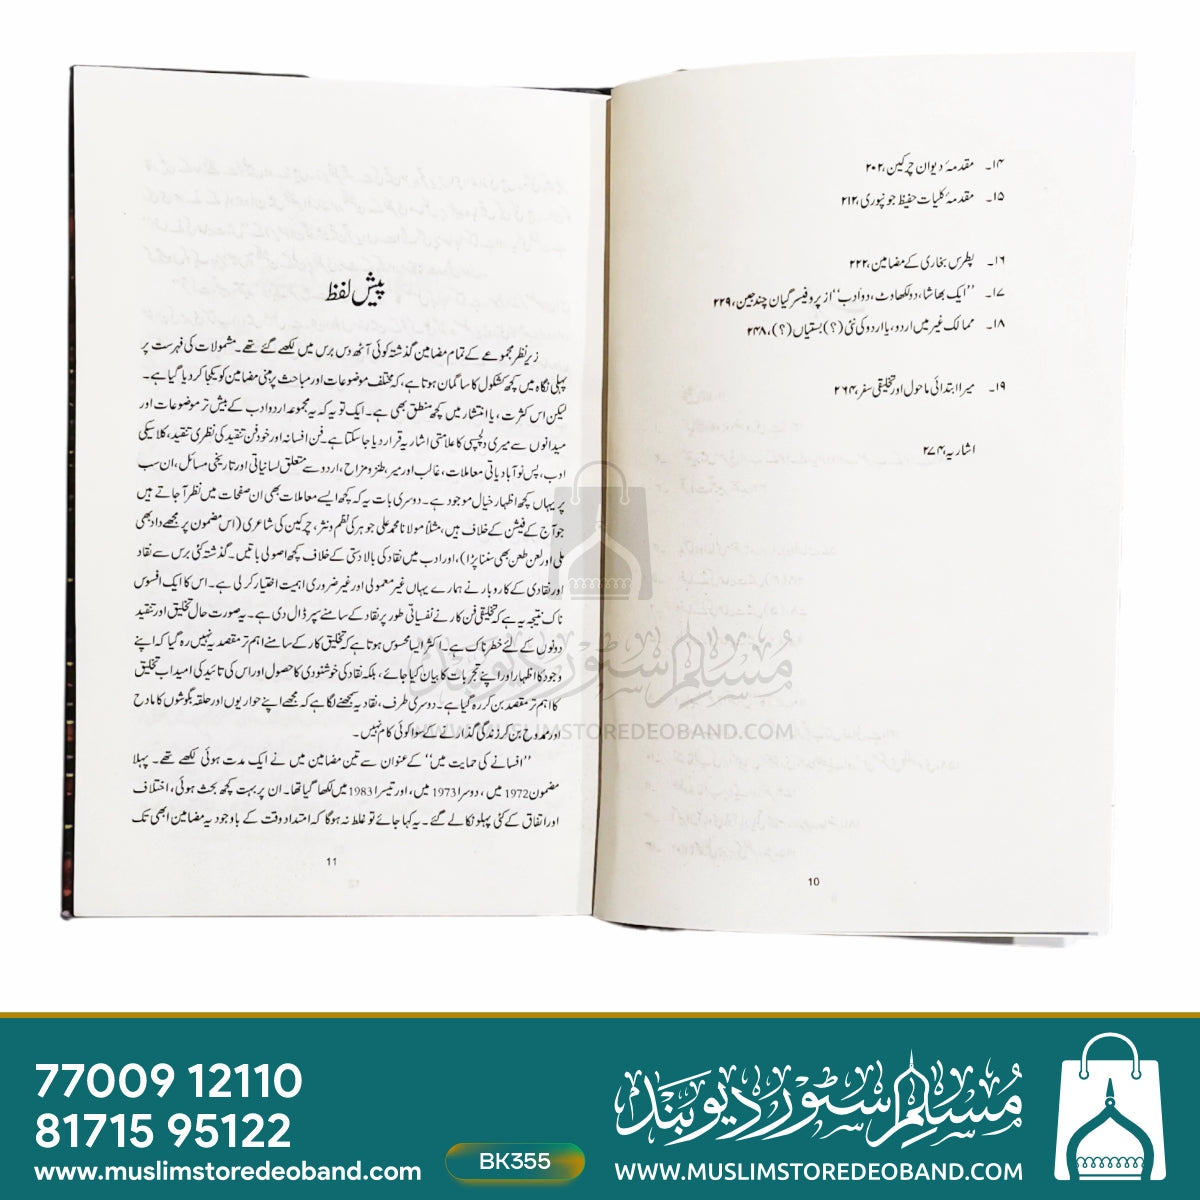 ۱۴۔ مقدمۂ دیوان چرکین، ۲۰۲
۱۵۔ مقدمۂ کلیات حفیظ جونپوری، ۲۱۲
۱۶۔ پطرس بخاری کے مضامین، ۲۲۲
۱۷۔ ’’ایک بھاشا، دو لکھاوٹ، دو ادب‘‘ از پروفیسر گیان چند جین، ۲۲۹
۱۸۔ ممالک غیر میں اردو، یا اردو کی نئی (؟) بستیاں (؟)، ۲۴۸
۱۹۔ میرا ابتدائی ماحول اور تخلیقی سفر، ۲۶۴
اشاریہ، ۲۷۴
10
پیش لفظ
زیر نظر مجموعے کے تمام مضامین گذشتہ کوئی آٹھ دس برس میں لکھے گئے تھے۔ مشمولات کی فہرست پر
پہلی نگاہ میں کچھ کشکول کا سا گمان ہوتا ہے، کہ مختلف موضوعات اور مباحث پر مبنی مضامین کو یکجا کر دیا گیا ہے۔
لیکن اس کثرت، یا انتشار میں کچھ منطق بھی ہے۔ ایک تو یہ کہ یہ مجموعہ اردو ادب کے بیش تر موضوعات اور
میدانوں سے میری دلچسپی کا علامتی اشاریہ قرار دیا جا سکتا ہے۔ فن افسانہ اور خود فن تنقید کی نظری تنقید، کلاسیکی
ادب، پس نوآبادیاتی معاملات، غالب اور میر، طنز و مزاح، اردو سے متعلق لسانیاتی اور تاریخی مسائل، ان سب
پر یہاں کچھ اظہار خیال موجود ہے۔ دوسری بات یہ کہ کچھ ایسے معاملات بھی ان صفحات میں نظر آ جاتے ہیں
جو آج کے فیشن کے خلاف ہیں، مثلاً مولانا محمد علی جوہر کی نظم و نثر، چرکین کی شاعری (اس مضمون پر مجھے داد بھی
ملی اور لعن طعن بھی سننا پڑا)، اور ادب میں نقاد کی بالادستی کے خلاف کچھ اصولی باتیں۔ گذشتہ کئی برس سے نقاد
اور نقادی کے کاروبار نے ہمارے یہاں غیر معمولی اور غیر ضروری اہمیت اختیار کر لی ہے۔ اس کا ایک افسوس
ناک نتیجہ یہ ہے کہ تخلیقی فن کار نے نفسیاتی طور پر نقاد کے سامنے سپر ڈال دی ہے۔ یہ صورت حال تخلیق اور تنقید
دونوں کے لئے خطرناک ہے۔ اکثر ایسا محسوس ہوتا ہے کہ تخلیق کار کے سامنے اہم تر مقصد یہ نہیں رہ گیا کہ اپنے
وجود کا اظہار اور اپنے تجربات کا بیان کیا جائے، بلکہ نقاد کی خوشنودی کا حصول اور اس کی تائید کی امید اب تخلیق
کا اہم تر مقصد بن کر رہ گیا ہے۔ دوسری طرف، نقاد یہ سمجھنے لگا ہے کہ مجھے اپنے حواریوں اور حلقہ بگوشوں کا مادح
اور ممدوح بن کر زندگی گذارنے کے سوا کوئی کام نہیں۔
’’افسانے کی حمایت میں‘‘ کے عنوان سے تین مضامین میں نے ایک مدت ہوئی لکھے تھے۔ پہلا
مضمون 1972 میں، دوسرا 1973 میں، اور تیسرا 1983 میں لکھا گیا تھا۔ ان پر بہت کچھ بحث ہوئی، اختلاف
اور اتفاق کے کئی پہلو نکالے گئے۔ یہ کہا جائے تو غلط نہ ہوگا کہ امتداد وقت کے باوجود یہ مضامین ابھی تک
11
مسلم سٹور دیوبند
WWW.MUSLIMSTOREDEOBAND.COM
77009 12110
81715 95122
www.muslimstoredeoband.com
BK355
مسلم سٹور دیوبند
WWW.MUSLIMSTOREDEOBAND.COM